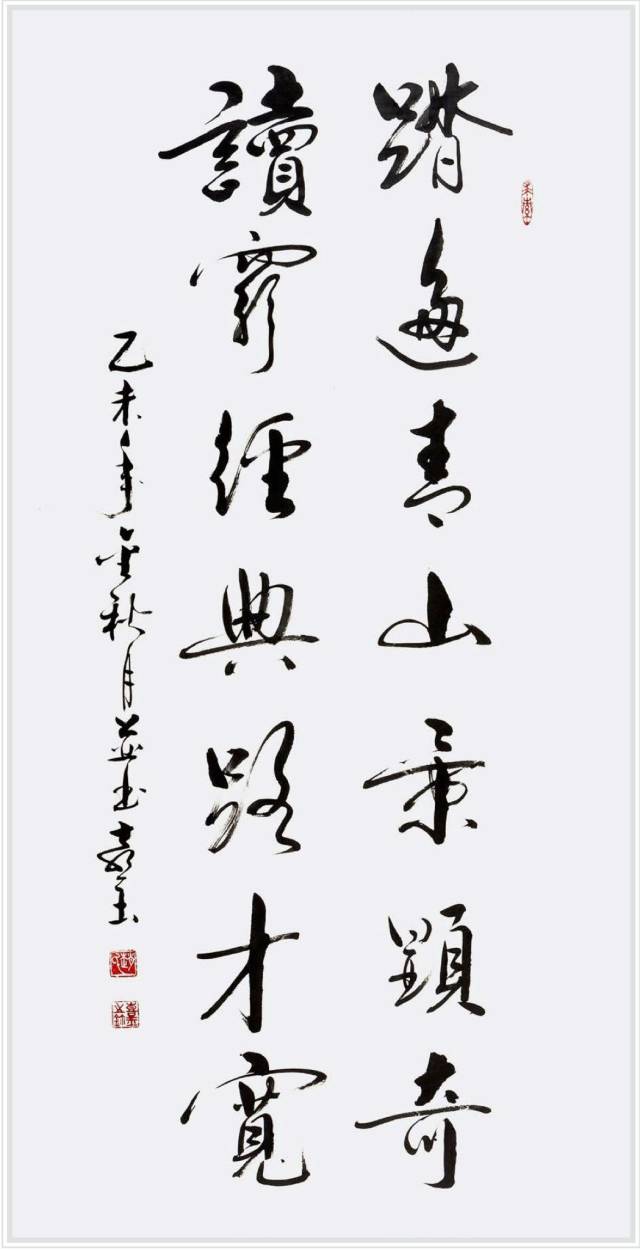 踏遍青山景顯奇
讀窮經典路才寬
乙未年金秋月书